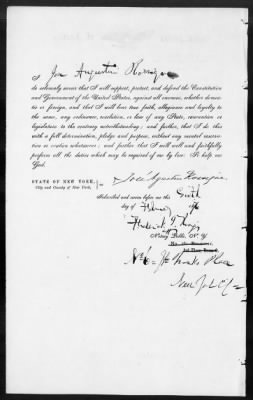 I Jose Augustin
do solemnly swear that I will support, protect, and defend the Constitution
and Government of the United States, against all enemies, whether domes-
tic or foreign, and that I will bear true faith, allegiance and loyalty to
the same, any ordinance, resolution, or law of any State, convention or
legislature to the contrary notwithstanding; and further, that I do this
with a full determination, pledge and purpose, without any mental reserva-
tion or evasion whatsoever; and further that I will well and faithfully
perform all the duties which may be required of me by law: So help me
God.
STATE OF NEW YORK,
City and County of New York,
José Agustin
Subscribed and sworn before me this Sixth
day of
Notary Public, N. Y.
New York City